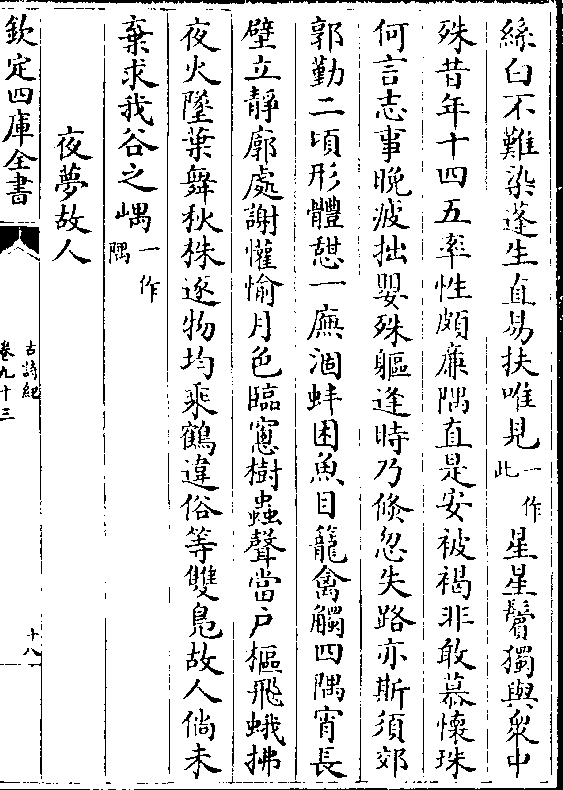 絲白不難染蓬生直易扶唯見一作此星星鬢獨與衆中
殊昔年十四五率性頗廉隅直是安被褐非敢慕懷珠
何言志事晚疲拙嬰殊軀逢時乃倏忽失路亦斯須郊
郭勤二頃形體憇一廡涸蚌困魚目籠禽觸四隅宵長
壁立靜廓處謝懽愉月色臨窻樹蟲聲當戶樞飛蛾拂
夜火墜葉舞秋株逐物均乘鶴違俗等雙鳧故人倘未
棄求我谷之嵎一作隅
夜夢故人
欽定四庫全書
古詩紀
卷九十三
十八